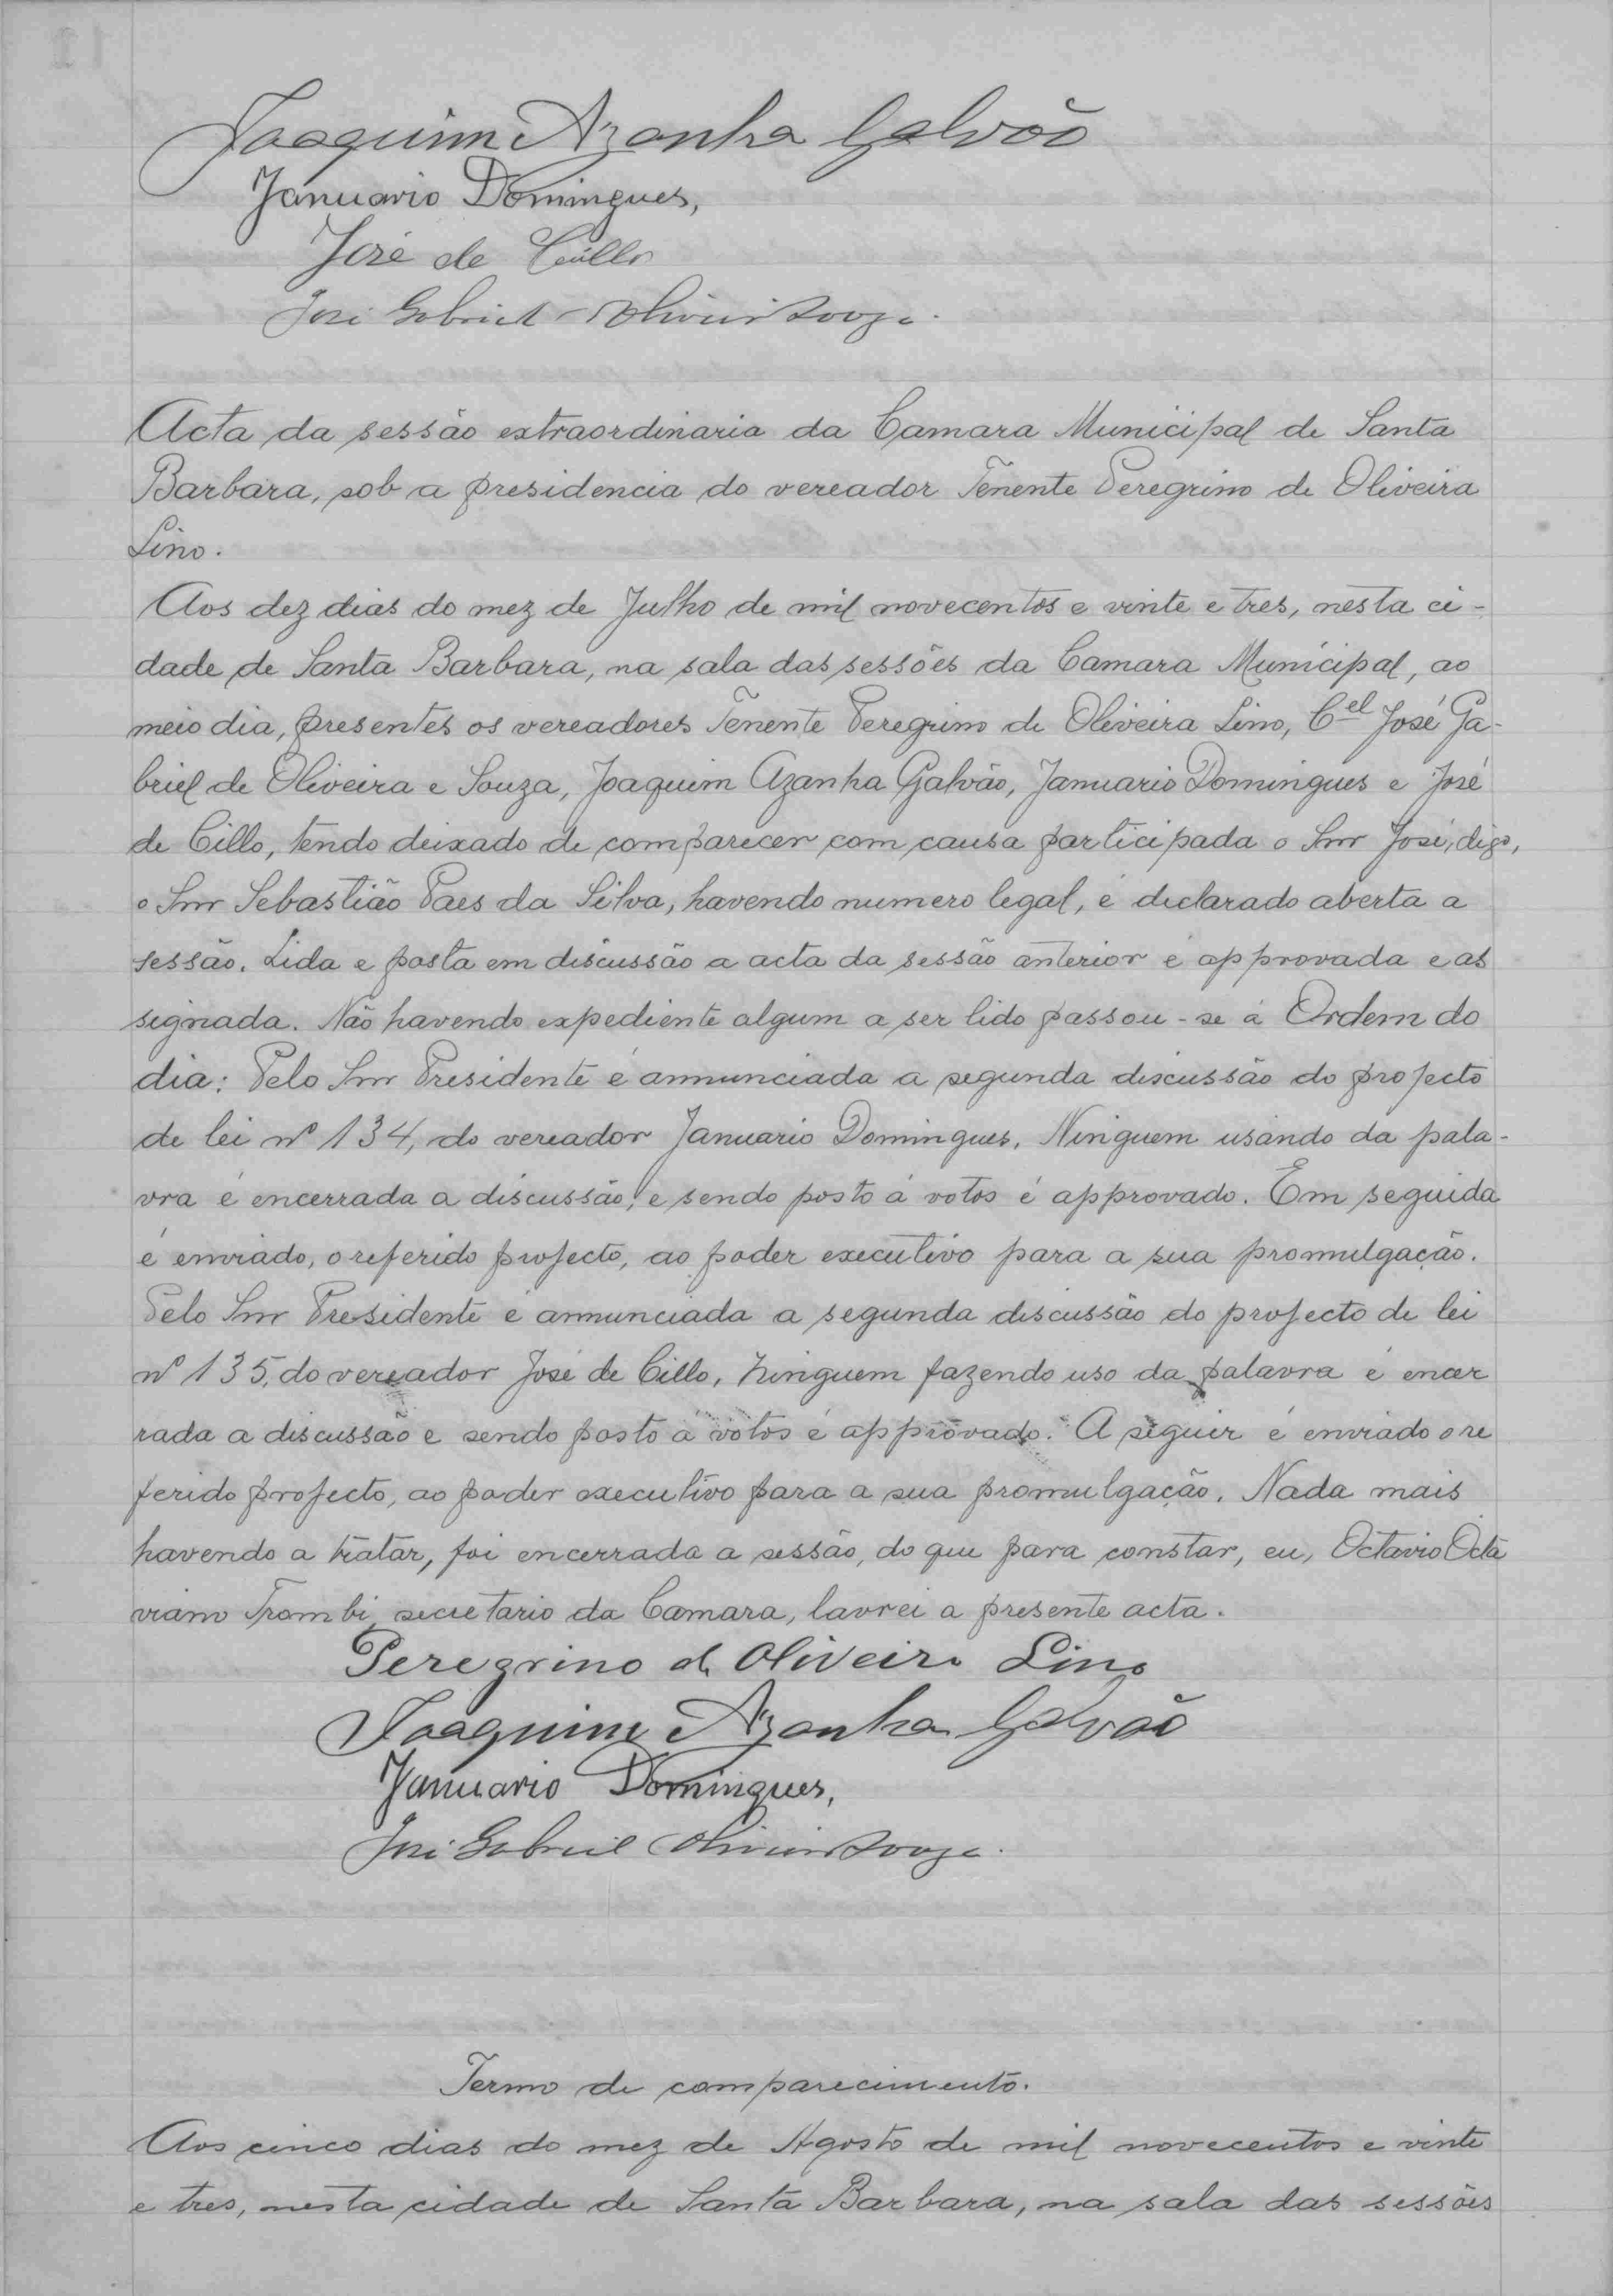 Joaquim Azanha Galvão
Januario Domingues,
José de Cillo
José Gabriel Oliveira Souza.
Acta da sessão extraordinaria da Camara Municipal de Santa
Barbara, sob a presidencia do vereador Tenente Peregrino de Oliveira
Lino.
Aos dez dias do mez de Julho de mil novecentos e vinte e tres, nesta ci-
dade de Santa Barbara, na sala das sessões da Camara Municipal, ao
meio dia, presentes os vereadores Tenente Peregrino de Oliveira Lino, Cel José Ga-
briel de Oliveira e Souza, Joaquim Azanha Galvão, Januario Domingues e José
de Cillo, tendo deixado de comparecer com causa participada o Snr José, digo,
o Snr Sebastião Paes da Silva, havendo numero legal, é declarado aberta a
sessão. Lida e posta em discussão a acta da sessão anterior é approvada e as
signada. Não havendo expediente algum a ser lido passou-se á Ordem do
dia: Pelo Snr Presidente é annunciada a segunda discussão do projecto
de lei nº 134, do vereador Januario Domingues. Ninguem usando da pala-
vra é encerrada a discussão, e sendo posto á votos é approvado. Em seguida
é enviado, o referido projecto, ao poder executivo para a sua promulgação.
Pelo Snr Presidente é annunciada a segunda discussão do projecto de lei
nº 135, do vereador José de Cillo, Ninguem fazendo uso da palavra é encer
rada a discussão e sendo posto á votos é approvado. A seguir é enviado o re
ferido projecto, ao poder executivo para a sua promulgação. Nada mais
havendo a tratar, foi encerrada a sessão, do que para constar, eu, Octavio Octa
viano Trombi, secretario da Camara, lavrei a presente acta.
Peregrino de Oliveira Lino
Joaquim Azanha Galvão
Januario Domingues,
José Gabriel Oliveira Souza.
Termo de comparecimento.
Aos cinco dias do mez de Agosto de mil novecentos e vinte
e tres, nesta cidade de Santa Barbara, na sala das sessões